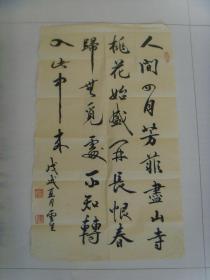 人间四月芳菲盡山寺
桃花始盛开長恨春
歸無覓處不知轉
入此中來
戊戌五月雲生